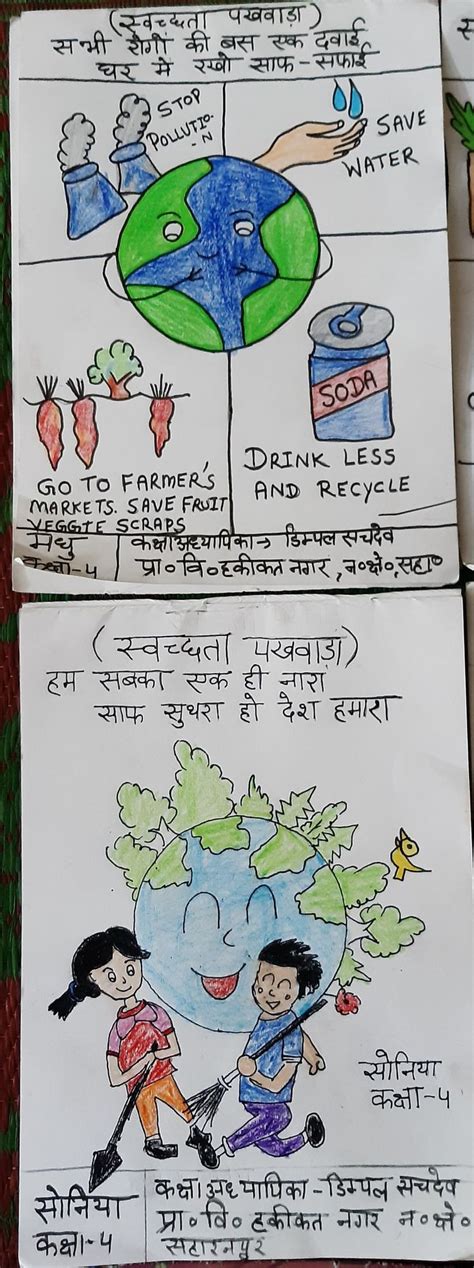 (स्वच्छता पखवाड़ा)
सभी रोगों की बस एक दवाई
घर में रखो साफ-सफाई
STOP
POLLUTIO-
-N
SAVE
WATER
SODA
GO TO FARMER'S
MARKETS. SAVE FRUIT
VEGGIE SCRAPS
DRINK LESS
AND RECYCLE
मधु
कक्षा-५
कक्षा अध्यापिका→ डिम्पल सचदेव
प्रा॰ वि॰ हकीकत नगर, न॰ क्षे॰, सहा॰
(स्वच्छता पखवाड़ा)
हम सबका एक ही नारा
साफ सुथरा हो देश हमारा
सोनिया
कक्षा-५
सोनिया
कक्षा-५
कक्षा अध्यापिका - डिम्पल सचदेव
प्रा॰ वि॰ हकीकत नगर न॰ क्षे॰
सहारनपुर